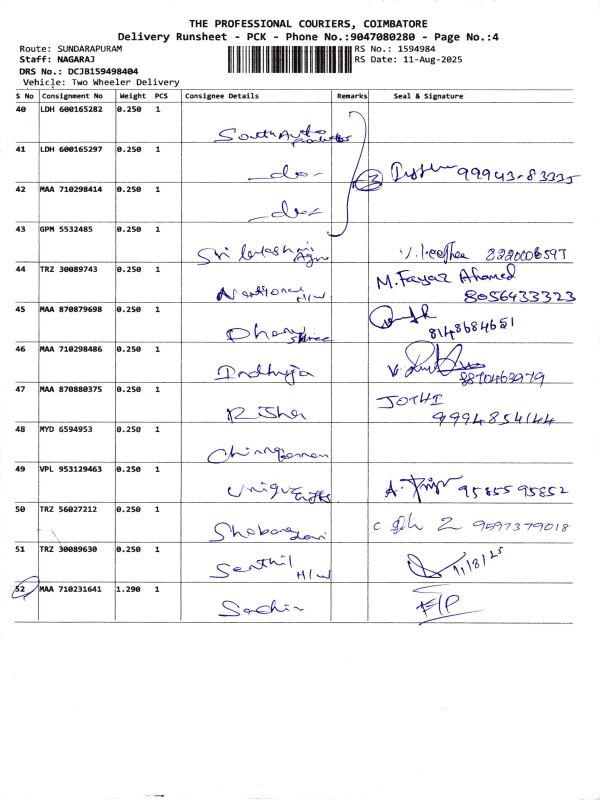 THE PROFESSIONAL COURIERS, COIMBATORE
Delivery Runsheet - PCK - Phone No.:9047080280 - Page No.:4
Route: SUNDARAPURAM RS No.: 1594984
Staff: NAGARAJ RS Date: 11-Aug-2025
DRS No.: DCJB159498404
Vehicle: Two Wheeler Delivery
S No Consignment No Weight PCS Consignee Details Remarks Seal & Signature
40 LDH 600165282 0.250 1 South Auto
41 LDH 600165297 0.250 1 -do-
3 99943-83335
42 MAA 710298414 0.250 1 -do-
43 GPM 5532485 0.250 1 Sri Agn 8220006597
44 TRZ 30089743 0.250 1 National H/W M. Fayaz Ahamed
8056433323
45 MAA 870879698 0.250 1 Dhanu shree
8148684651
46 MAA 710298486 0.250 1 Indhuja
8870463979
47 MAA 870880375 0.250 1 Risha JOTHI
9994854144
48 MYD 6594953 0.250 1
49 VPL 953129463 0.250 1 Unique Gifts A. 9585595852
50 TRZ 56027212 0.250 1 Shobana 9597379018
51 TRZ 30089630 0.250 1 Senthil H/W 11/8/25
52 MAA 710231641 1.290 1 Sachin F/P